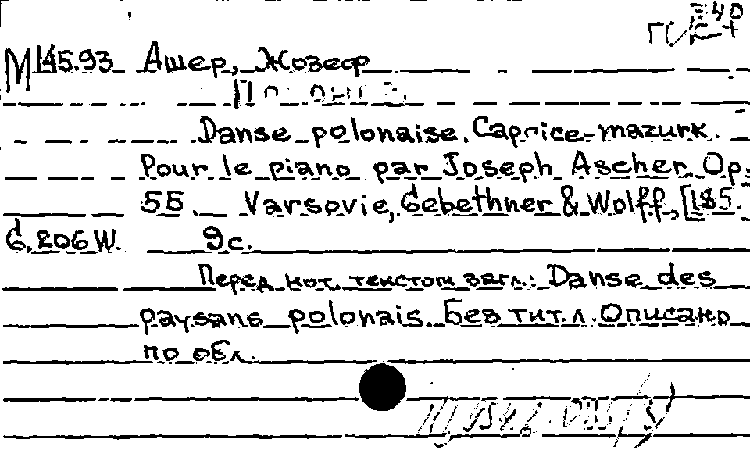 М 145.93 Ашер, Жозеф
Danse polonaise. Caprice-mazurk.
Pour le piano par Joseph Ascher. Op.
55. Varsovie, Gebethner & Wolff, [185.
G.206W. 9с.
Перед нот. текстом загл.: Danse des
paysans polonais. Без тит.л. Описано
по обл.